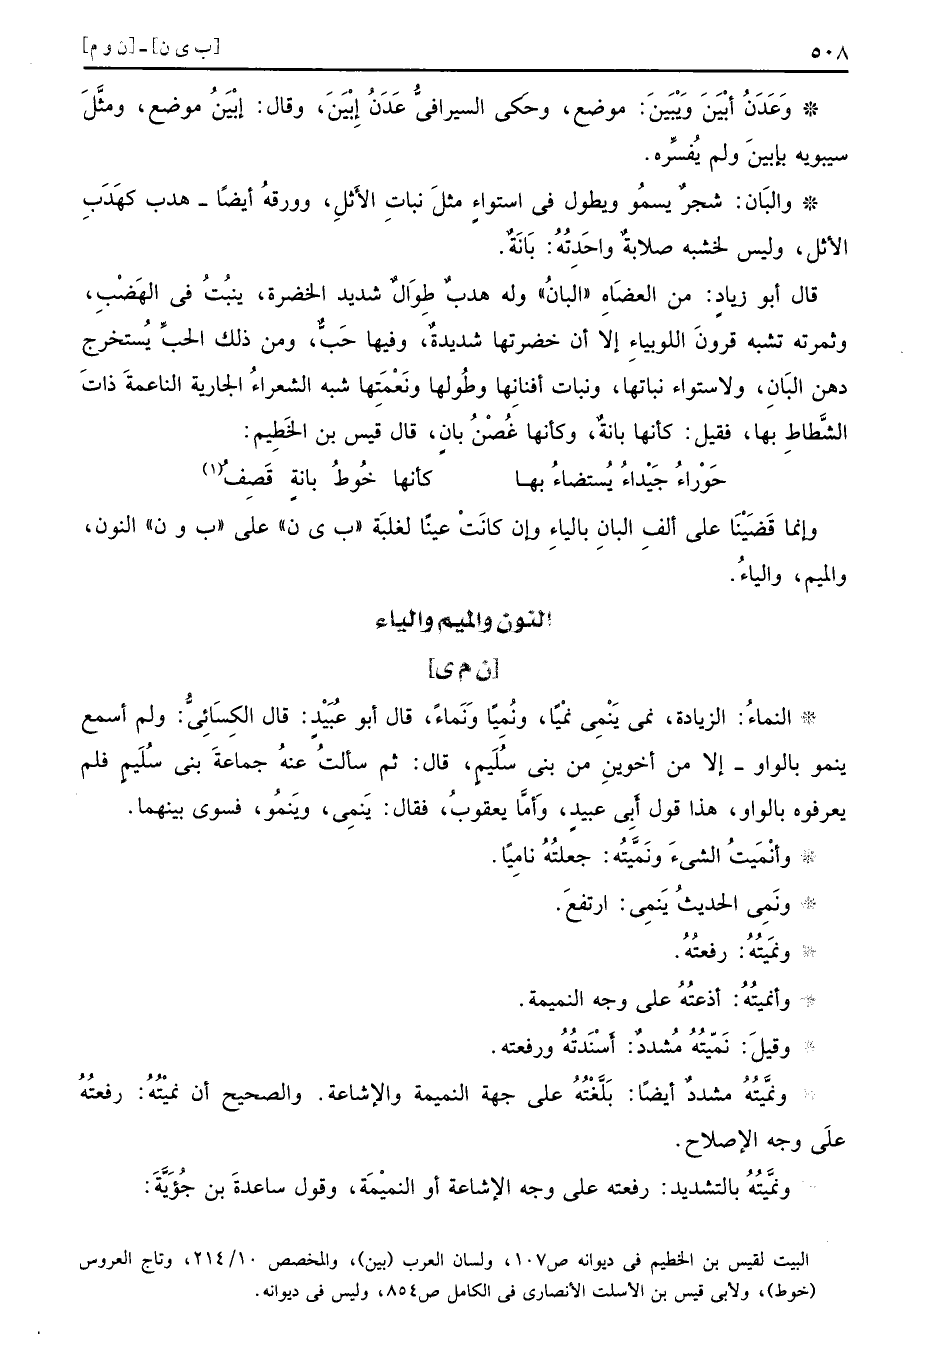 ٥٠٨ [ب ى ن] - [ن و م]
* وَعَدَنُ أَبْيَنَ وَيَبْيَنَ: موضع، وحكى السيرافىُّ عَدَنُ إِبْيَنَ، وقال: إِبْيَنُ موضع، ومثَّلَ
سيبويه بإبينَ ولم يُفسِّره.
* والبَان: شجرٌ يسمُو ويطول فى استواءٍ مثلَ نباتِ الأَثلِ، وورقهُ أيضًا ـ هدب كهَدَبِ
الأثل، وليس لخشبه صلابةٌ واحَدِتُهُ: بَانَةٌ.
قال أبو زيادٍ: من العضَاهِ «البانُ» وله هدبٌ طوَالٌ شديد الخضرة، ينبُتُ فى الهَضْبِ،
وثمرته تشبه قرونَ اللوبياءِ إلا أن خضرتها شديدةٌ، وفيها حَبٌّ، ومن ذلك الحبِّ يُستخرج
دهن البَانِ، ولاستواء نباتها، ونبات أفنانِها وطُولها ونَعْمَتِها شبه الشعراءُ الجارية الناعمةَ ذاتَ
الشَّطاطِ بها، فقيل: كأنها بانةٌ، وكأنها غُصْنُ بانٍ، قال قيس بن الخَطِيم:
حَوْراءُ جَيْداءُ يُستضاءُ بهـا كأنها خُوطُ بانةٍ قَصِفُ(١)
وإنما قَضَيْنَا على ألفِ البانِ بالياءِ وإن كانَتْ عينًا لغلبَة «ب ى ن» على «ب و ن» النون،
والميم، والياءُ.
النون والميم والياء
[ن م ى]
* النماءُ: الزيادة، نمى يَنْمِى نمْيًا، ونُمِيًا ونَماءً، قال أبو عُبَيْدٍ: قال الكِسَائِىُّ: ولم أسمع
ينمو بالواو ـ إلا من أخوينِ من بنى سُلَيمٍ، قال: ثم سألتُ عنهُ جماعةَ بنى سُلَيمٍ فلم
يعرفوه بالواو، هذا قول أَبى عبيدٍ، وَأمَّا يعقوبُ، فقال: يَنمى، ويَنمُو، فسوى بينهما.
* وأنْمَيتُ الشىءَ ونَمَّيتُه: جعلتُهُ نامِيًا.
* ونَمِى الحديثُ يَنمِى: ارتفعَ.
* ونمَيتُهُ: رفعتُهُ.
* وأنميتُهُ: أذعتُهُ على وجه النميمة.
* وقيلَ: نَمّيتُهُ مُشددٌ: أَسْنَدتُهُ ورفعته.
* ونمَّيتُهُ مشددٌ أيضًا: بَلَّغْتُهُ على جهة النميمة والإشاعة. والصحيح أن نميْتُهُ: رفعتُهُ
علَى وجه الإصلاح.
ونمَّيتُهُ بالتشديد: رفعته على وجه الإشاعة أو النميْمَة، وقول ساعدةَ بن جُؤَيَّةَ:
البيت لقيس بن الخطيم فى ديوانه ص١٠٧، ولسان العرب (بين)، والمخصص ٢١٤/١٠، وتاج العروس
(خوط)، ولأبى قيس بن الأسلت الأنصارى فى الكامل ص٨٥٤، وليس فى ديوانه.